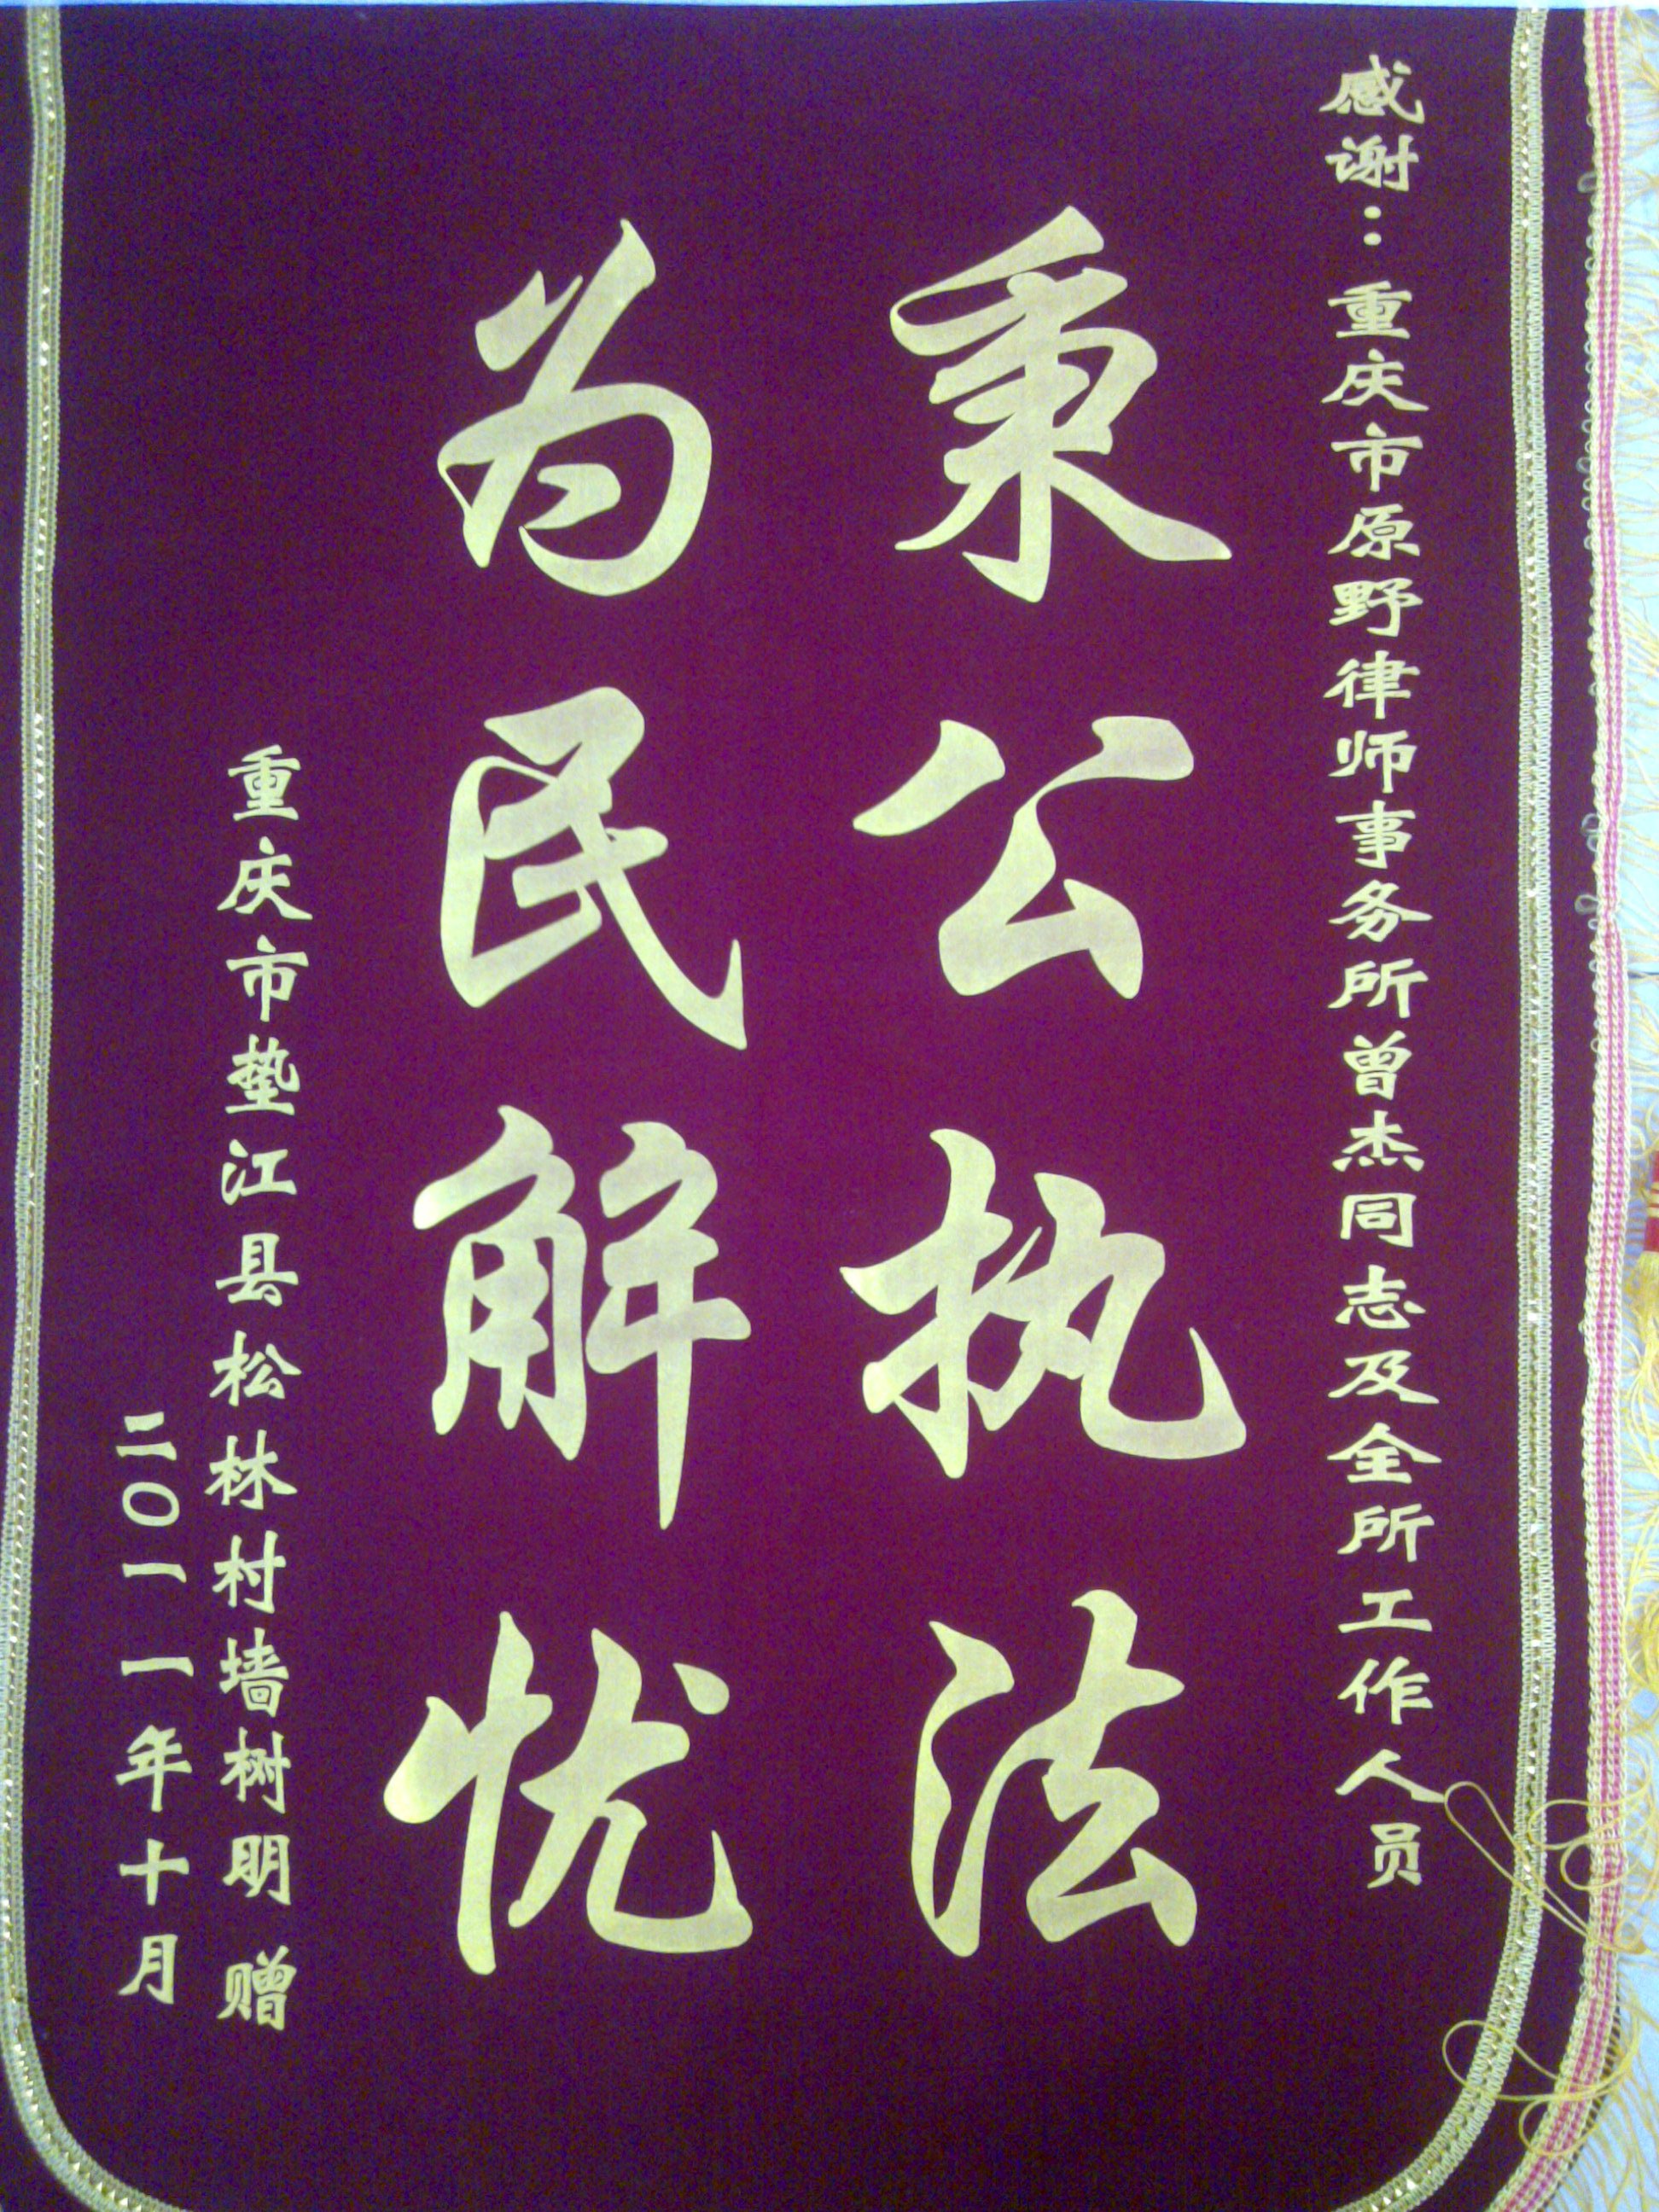 感谢：重庆市原野律师事务所曾杰同志及全所工作人员
秉公执法
为民解忧
重庆市垫江县松林村墙树明 赠
二〇一一年十月